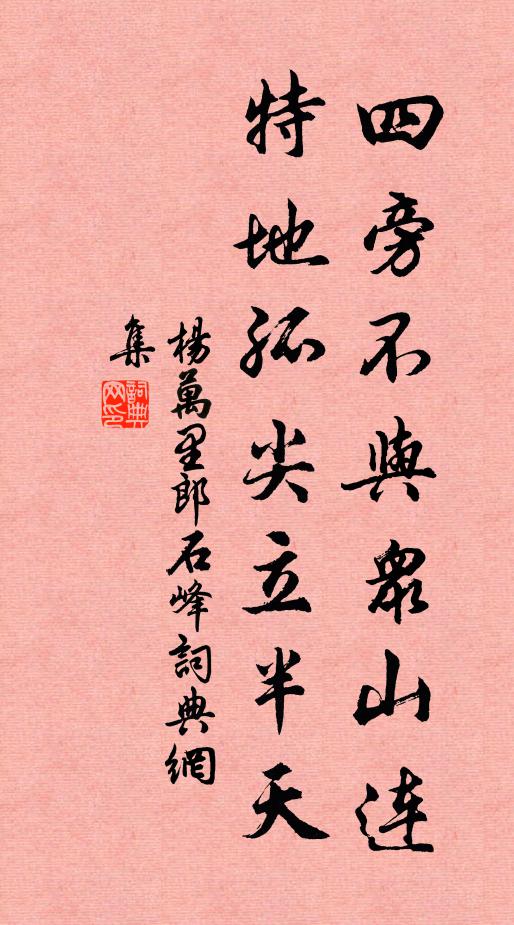 四旁不與眾山連
特地孤尖立半天
楊萬里郎石峰詞典網
集
詞典
网印